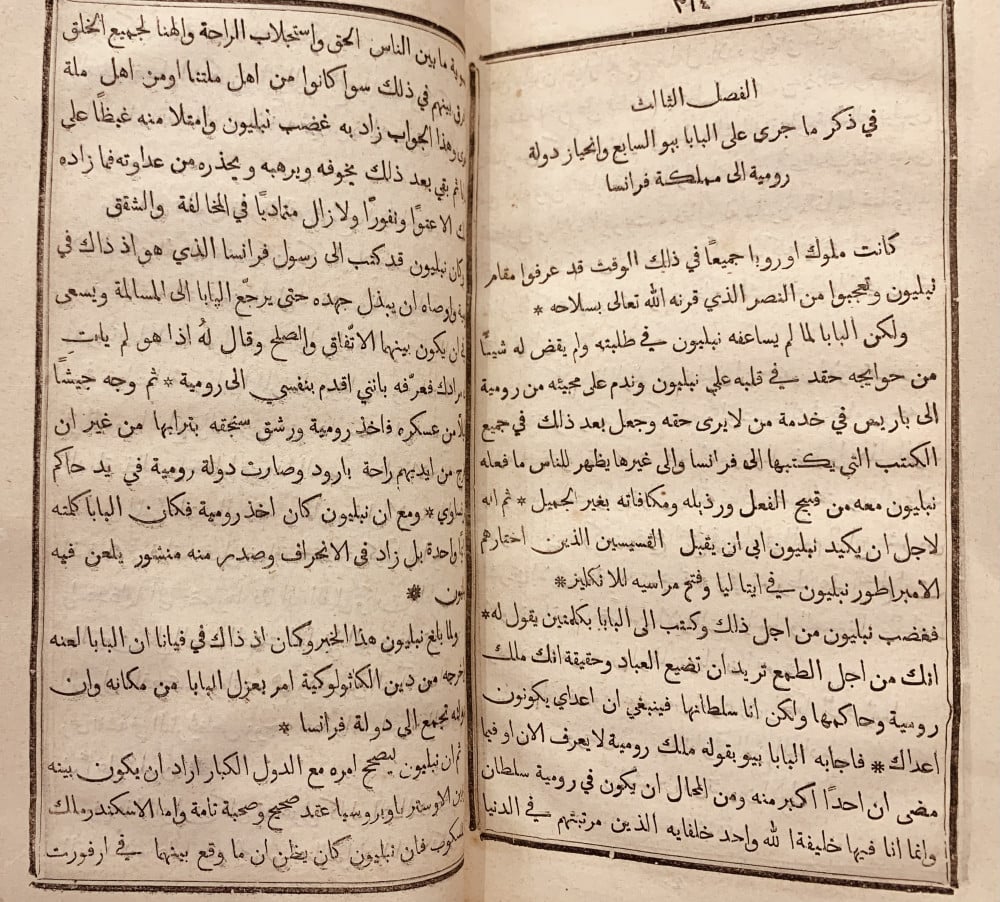 ٣١٤
الفصل الثالث
في ذكر ما جرى على البابا بيو السابع وانحياز دولة
رومية الى مملكة فرانسا
كانت ملوك اوروبا جميعاً في ذلك الوقت قد عرفوا مقام
نبليون وتعجبوا من النصر الذي قرنه الله تعالى بسلاحه *
ولكن البابا لما لم يساعفه نبليون في طلبته ولم يقض له شيئاً
من حوايجه حقد في قلبه علي نبليون وندم على مجيئه من رومية
الى باريس في خدمة من لا يرى حقه وجعل بعد ذلك في جميع
الكتب التي يكتبها الى فرانسا والى غيرها يظهر للناس ما فعله
نبليون معه من قبيح الفعل ورذيله ومكافاته بغير الجميل * ثم انه
لاجل ان يكيد نبليون ابى ان يقبل القسيسين الذين اختارهم
الامبراطور نبليون في ايتاليا وفتح مراسيه للانكليز *
فغضب نبليون من اجل ذلك وكتب الى البابا بكلمتين يقول له *
انك من اجل الطمع تريد ان تضيع العباد وحقيقة انك ملك
رومية وحاكمها ولكن انا سلطانها فينبغي ان اعداي يكونون
اعداك * فاجابه البابا بيو بقوله ملك رومية لا يعرف الان او فيما
مضى ان احدًا اكبر منه ومن المحال ان يكون في رومية سلطان
وانما انا فيها خليفة الله واحد خلفايه الذين مرتبتهم في الدنيا
ما بين الناس الحق واستجلاب الراحة والهنا لجميع الخلق
بينهم في ذلك سوا كانوا من اهل ملتنا او من اهل ملة
وهذا الجواب زاد به غضب نبليون وامتلا منه غيظًا علي
ثم بقي بعد ذلك يخوفه ويرهبه ويحذره من عداوته فما زاده
الا عتوًا ونفورًا ولازال متماديًا في المخالفة والشقق
وكان نبليون قد كتب الى رسول فرانسا الذي هو اذ ذاك في
واوصاه ان يبذل جهده حتى يرجّع البابا الى المسالمة ويسعى
ان يكون بينهما الاتّفاق والصلح وقال لهُ اذا هو لم يات
مرادك فعرّفه بانني اقدم بنفسي الى رومية * ثم وجه جيشًا
من عسكره فاخذ رومية ورشق سنجقه بترابها من غير ان
من ايديهم راحة بارود وصارت دولة رومية في يد حاكم
* ومع ان نبليون كان اخذ رومية فكان البابا كلمته
واحدة بل زاد في الانحراف وصدر منه منشور يلعن فيه
*
ولما بلغ نبليون هذا الخبر وكان اذ ذاك في فيانا ان البابا لعنه
من دين الكاثولوكية امر بعزل البابا من مكانه وان
تجمع الى دولة فرانسا *
ثم ان نبليون ليصحح امره مع الدول الكبار اراد ان يكون بينه
الاوستريا وبروسيا عقد صحيح وصحبة تامة واما الاسكندر ملك
فان نبليون كان يظن ان ما وقع بينهما في ارفورت